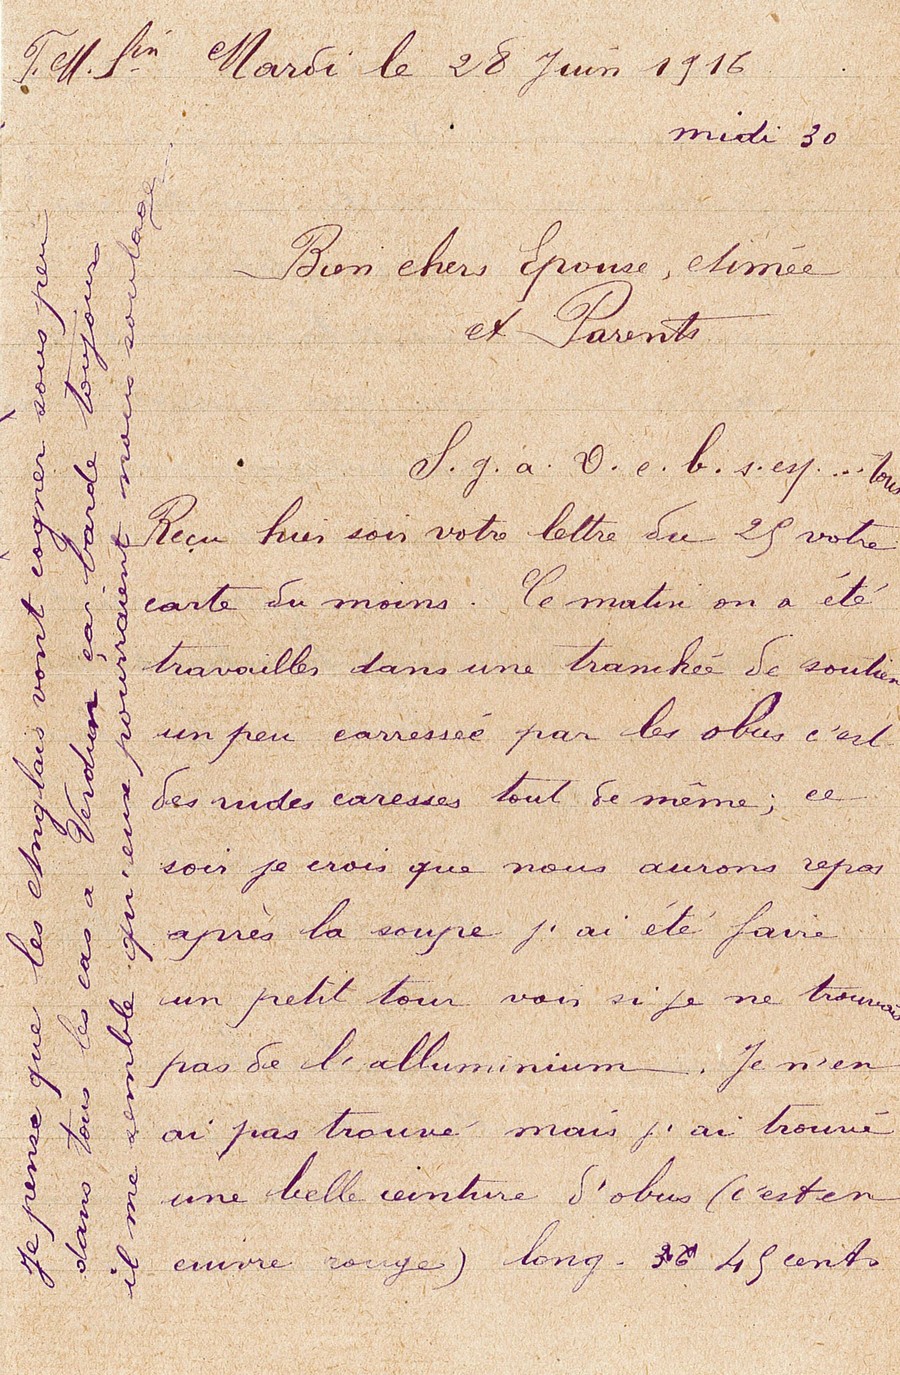 T. M. fin Mardi le 28 Juin 1916
midi 30
Bien chers Epouse, etimée
et Parents
S. g. a. D. e. b. s. esp. ... tous
Reçu hier soir votre lettre du 25 votre
carte du moins. Ce matin on a été
travailler dans une tranchée de soutien
un peu carresseé par les obus c'est
des rudes caresses tout de même; ce
soir je crois que nous aurons repos
après la soupe j'ai été faire
un petit tour voir si je ne trouvais
pas de l'alluminium. Je n'en
ai pas trouvé mais j'ai trouvé
une belle ceinture d'obus (c'est en
cuivre rouge) long. 45 cents
Je pense que les Anglais vont cogner sous peu
dans tous les cas a Verdun ça barde toujours
il me semble qu'eux pourraient nous soulager